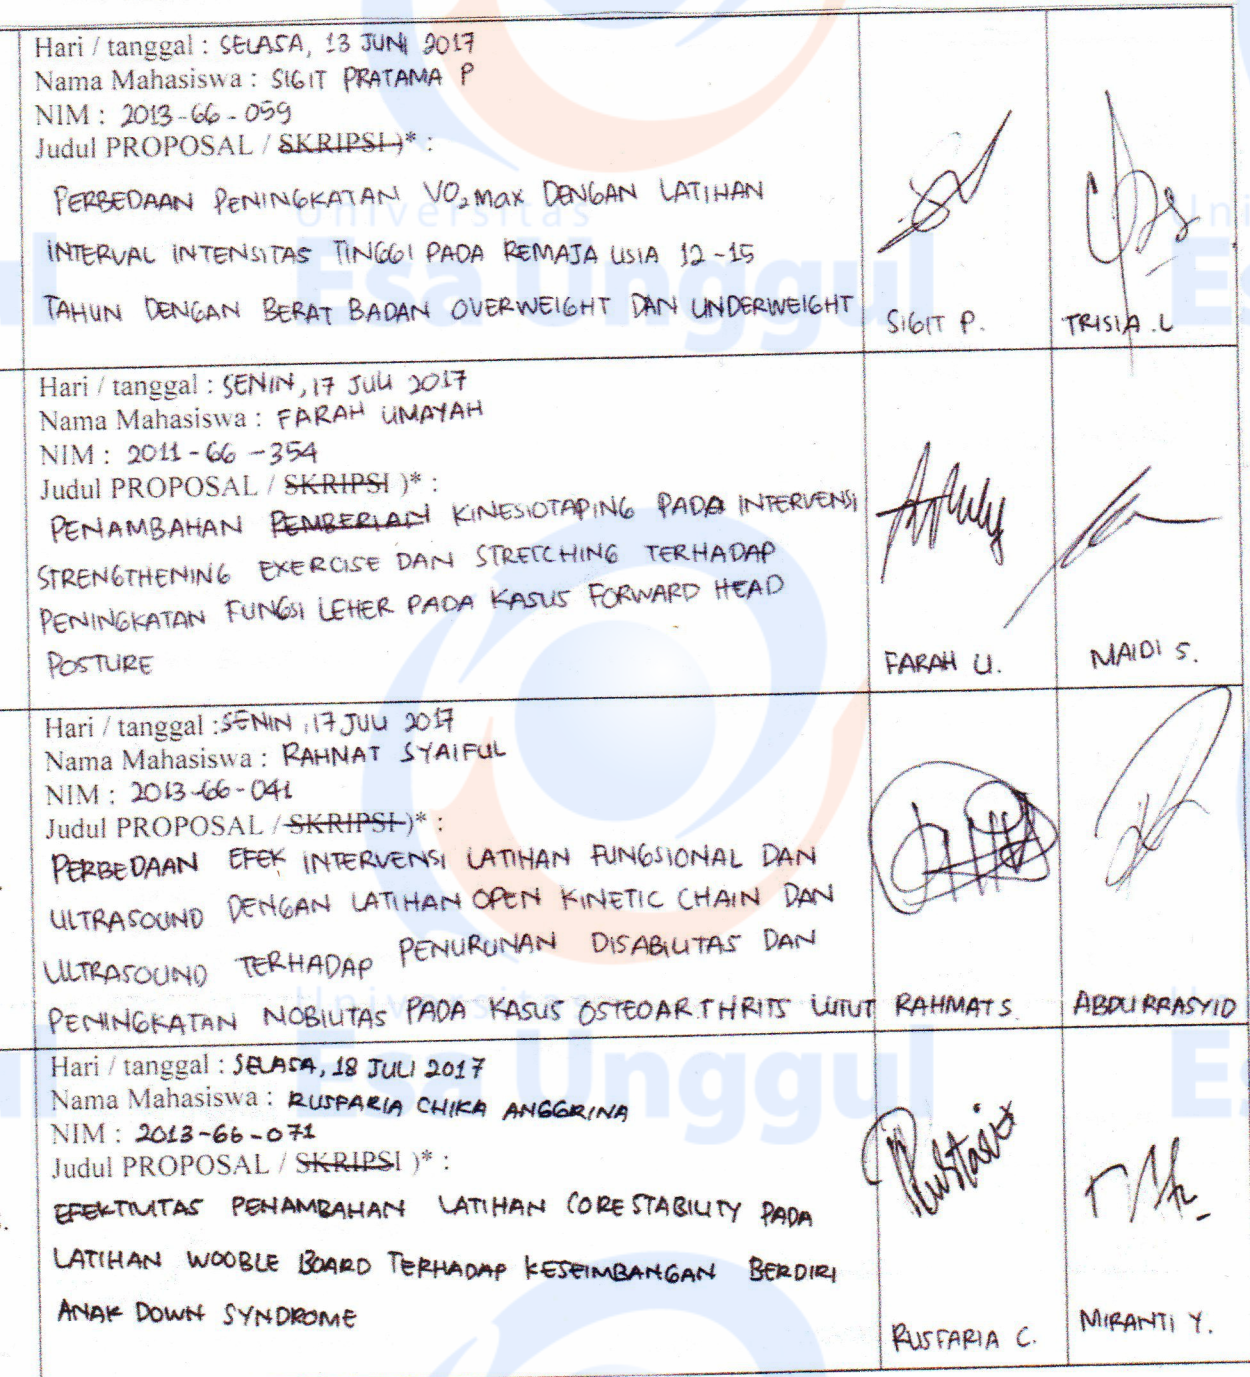 Hari / tanggal : SELASA, 13 JUNI 2017
Nama Mahasiswa : SIGIT PRATAMA P
NIM : 2013-66-059
Judul PROPOSAL / SKRIPSI )* :
PERBEDAAN PENINGKATAN VO2 MAX DENGAN LATIHAN
INTERVAL INTENSITAS TINGGI PADA REMAJA USIA 12-15
TAHUN DENGAN BERAT BADAN OVERWEIGHT DAN UNDERWEIGHT
SIGIT P.
TRISIA .L
Hari / tanggal : SENIN, 17 JULI 2017
Nama Mahasiswa : FARAH UMAYAH
NIM : 2011-66-354
Judul PROPOSAL / SKRIPSI )* :
PENAMBAHAN PEMBERIAN KINESIOTAPING PADA INTERVENSI
STRENGTHENING EXERCISE DAN STRETCHING TERHADAP
PENINGKATAN FUNGSI LEHER PADA KASUS FORWARD HEAD
POSTURE
FARAH U.
MAIDI S.
Hari / tanggal : SENIN, 17 JULI 2017
Nama Mahasiswa : RAHMAT SYAIFUL
NIM : 2013-66-041
Judul PROPOSAL / SKRIPSI )* :
PERBEDAAN EFEK INTERVENSI LATIHAN FUNGSIONAL DAN
ULTRASOUND DENGAN LATIHAN OPEN KINETIC CHAIN DAN
ULTRASOUND TERHADAP PENURUNAN DISABILITAS DAN
PENINGKATAN MOBILITAS PADA KASUS OSTEOARTHRITS LUTUT
RAHMAT S.
ABDURRASYID
Hari / tanggal : SELASA, 18 JULI 2017
Nama Mahasiswa : RUSFARIA CHIKA ANGGRINA
NIM : 2013-66-071
Judul PROPOSAL / SKRIPSI )* :
EFEKTIVITAS PENAMBAHAN LATIHAN CORE STABILITY PADA
LATIHAN WOOBLE BOARD TERHADAP KESEIMBANGAN BERDIRI
ANAK DOWN SYNDROME
RUSFARIA C.
MIRANTI Y.
Universitas
Esa Unggul
Universitas
Esa Unggul